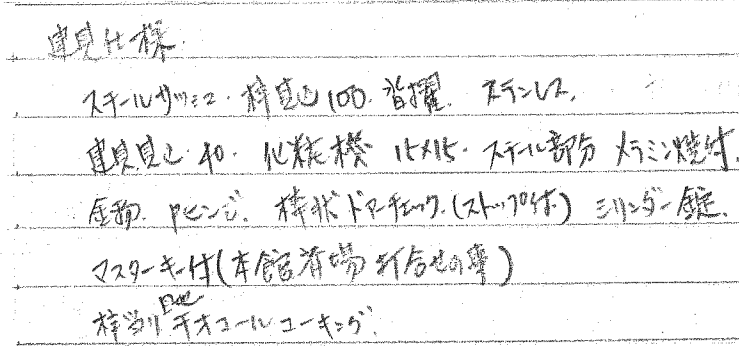 建具仕様
スチールサッシュ・枠見込100. 沓摺. ステンレス.
建具見込・40・化粧機 15×15・スチール部分 メラミン焼付.
金物. Pヒンジ. 枠状ドアーチェック.(ストップ付) シリンダー錠.
マスターキー付(本館 打合せの事)
枠当り チオコールコーキング.